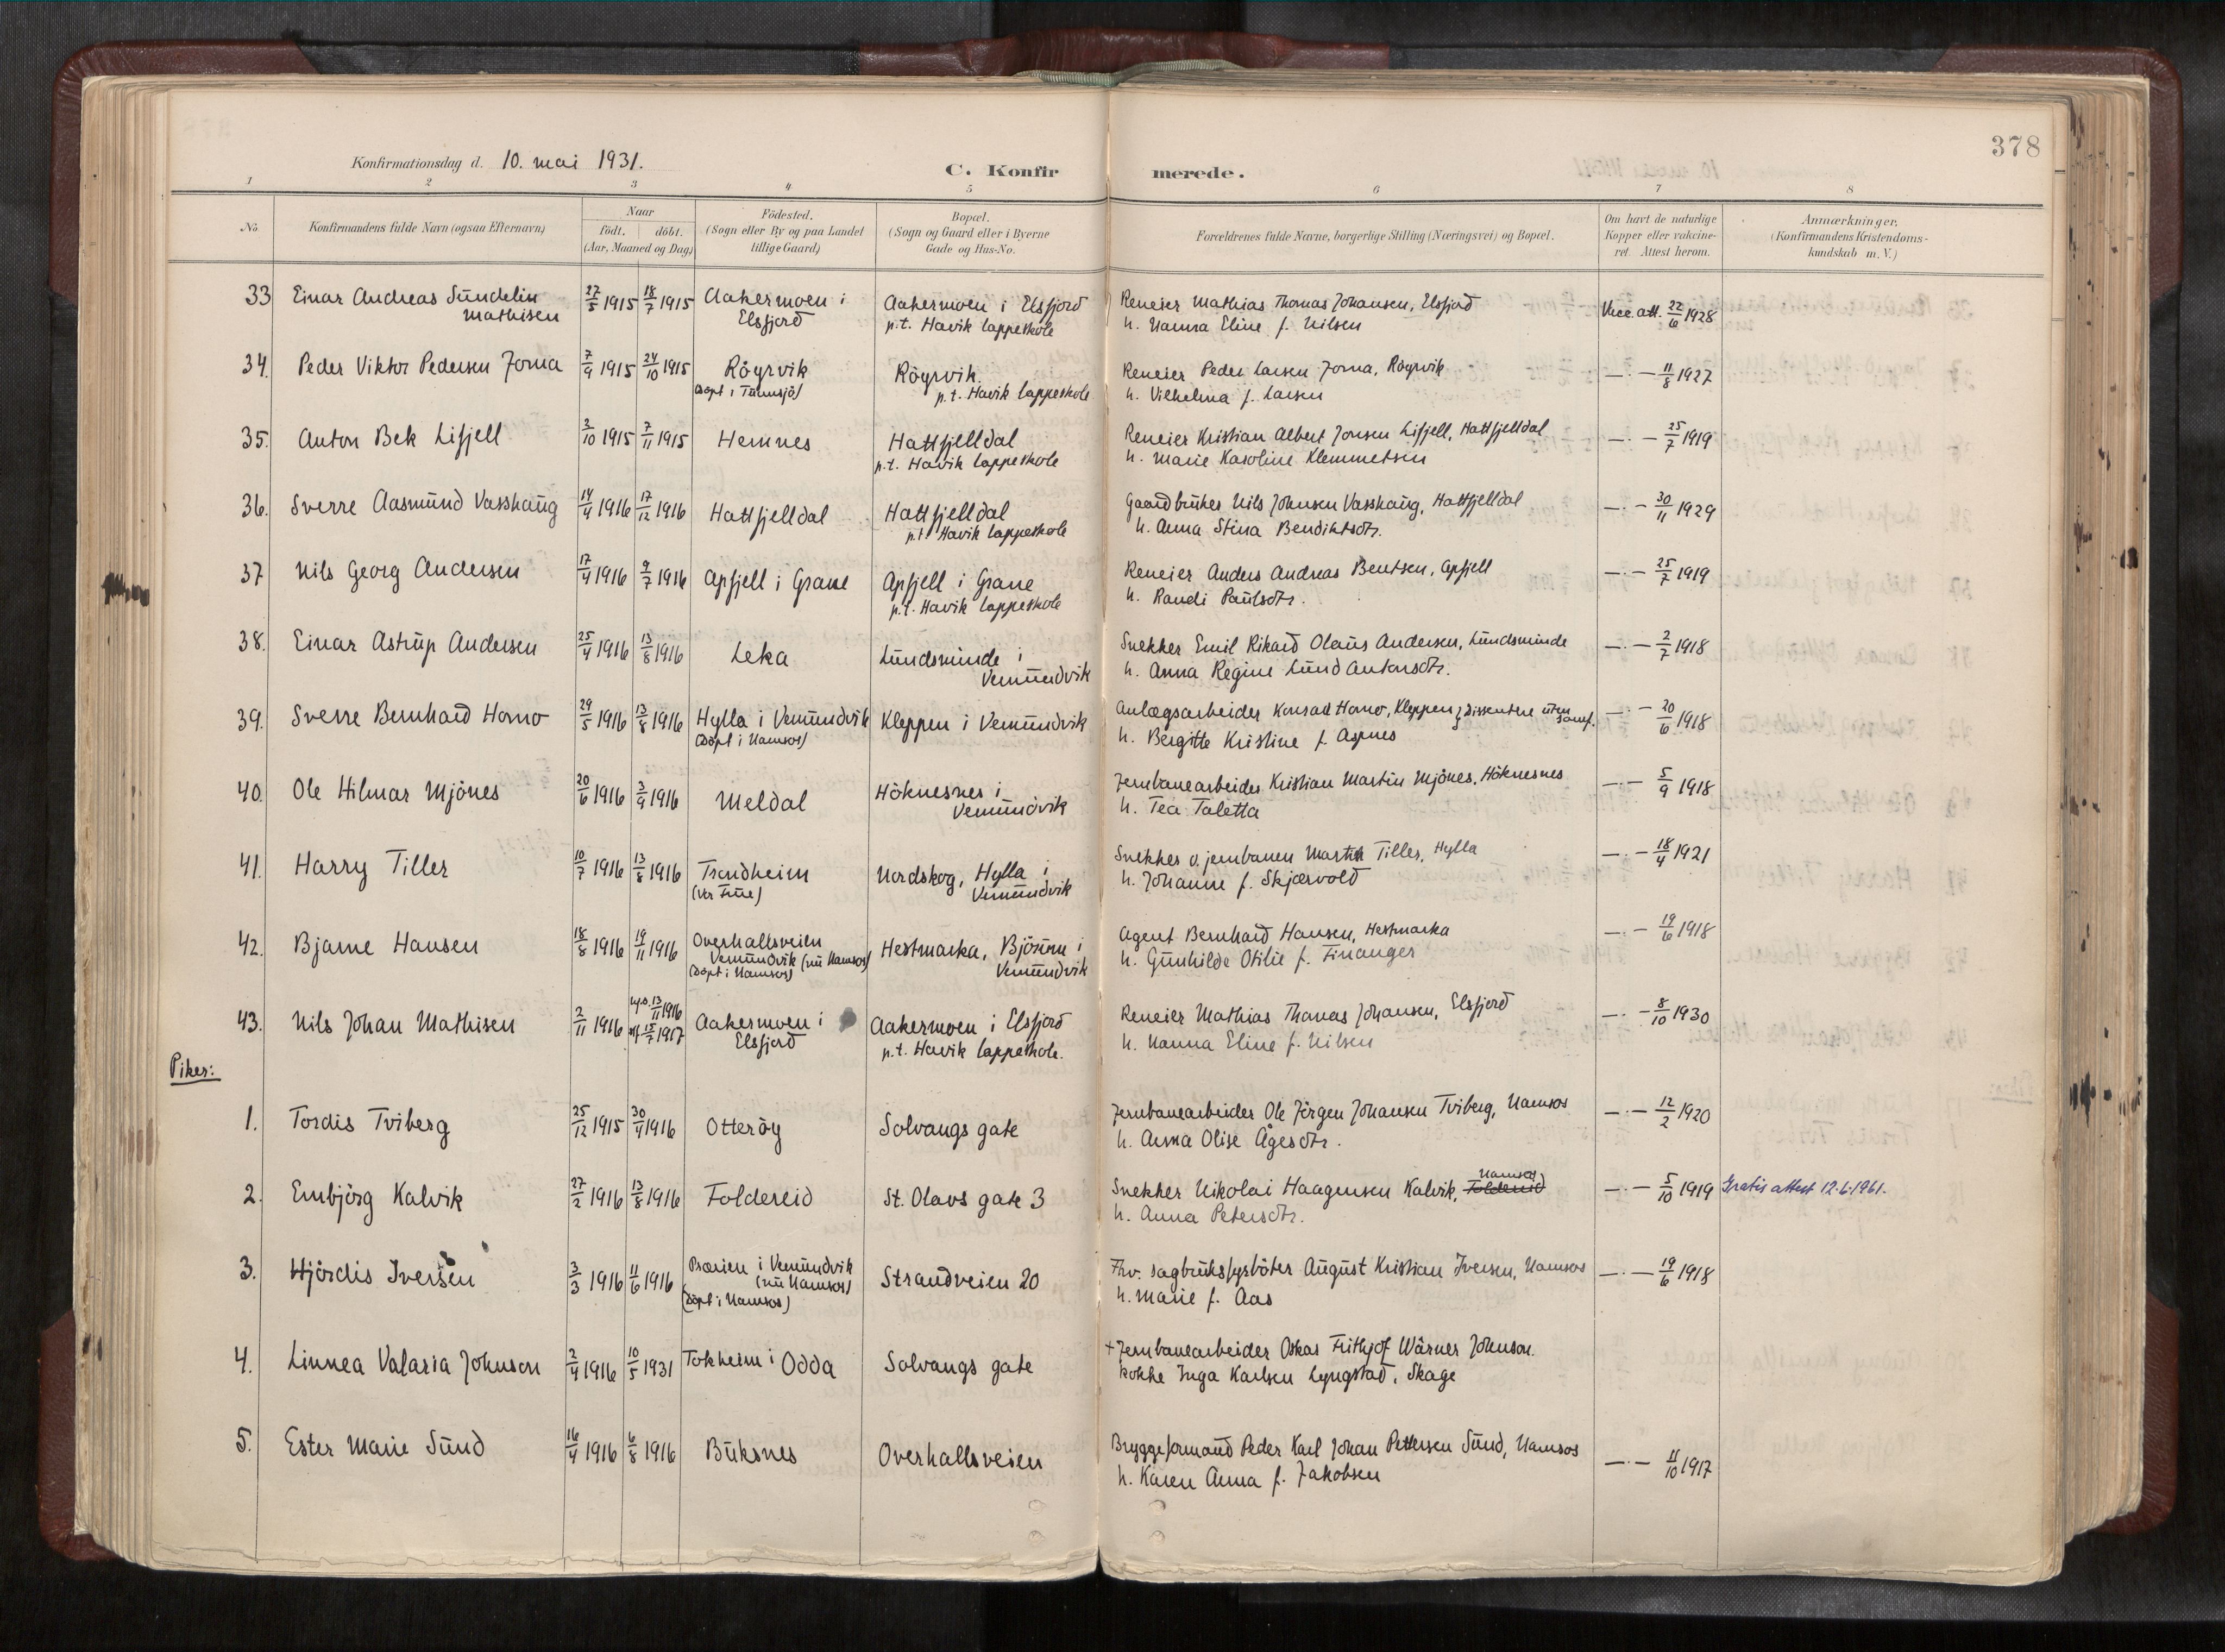 378
Konfirmationsdag d. 10. mai 1931.
C. Konfirmerede.
1 2 3 4 5 6 7 8
No. Konfirmandens fulde Navn (ogsaa Efternavn) Naar født. døbt. (Aar, Maaned og Dag) Födested. (Sogn eller By og paa Landet tillige Gaard) Bopæl. (Sogn og Gaard eller i Byerne Gade og Hus-No. Forældrenes fulde Navne, borgerlige Stilling (Næringsvei) og Bopæl. Om havt de naturlige Kopper eller vakcineret. Attest herom. Anmærkninger, (Konfirmandens Kristendomskundskab m. V.)
33 Einar Andreas Sundelin 27/5 1915 18/7 1915 Aakermoen i Aakermoen i Elsfjord Reneier Mathias Thomas Johansen, Elsfjord Vacc. att. 22/6 1928
Mathisen Elsfjord p.t. Havik lappeskole h. Nanna Eline f. Nilsen
34. Peder Viktor Pedersen Joma 7/9 1915 24/10 1915 Röyrvik Röyrvik Reneier Peder Larsen Joma, Röyrvik —.— 11/8 1927
(döpt i Tunnsjö) p.t. Havik lappeskole h. Vilhelmina f. Larsen
35. Anton Bek Lifjell 3/10 1915 7/11 1915 Hemnes Hattfjelldal Reneier Kristian Albert Jonsen Lifjell, Hattfjelldal —.— 25/7 1919
p.t. Havik lappeskole h. Marie Karoline Klemmetsen
36. Sverre Aasmund Vasshaug 14/4 1916 17/12 1916 Hattfjelldal Hattfjelldal Gaardbruker Nils Johnsen Vasshaug, Hattfjelldal —.— 30/11 1929
p.t. Havik lappeskole h. Anna Stina Bendiktsdtr.
37 Nils Georg Andersen 17/4 1916 9/7 1916 Apfjell i Grane Apfjell i Grane Reneier Anders Andreas Bentsen, Apfjell —.— 25/7 1919
p.t. Havik lappeskole h. Randi Paulsdtr.
38. Einar Astrup Andersen 25/4 1916 13/8 1916 Leka Lundsminde i Snekker Emil Rikard Olaus Andersen, Lundsminde —.— 2/7 1918
Vemundvik h. Anna Regine Lund Antonsdtr.
39. Sverre Bernhard Homo 29/5 1916 13/8 1916 Hylla i Vemundvik Kleppen i Vemundvik Anlægsarbeider Konrad Homo, Kleppen } dissentere uten samf. —.— 20/6 1918
(döpt i Namsos) h. Bergitte Kristine f. Aspnes
40. Ole Hilmar Mjönes 20/6 1916 3/9 1916 Meldal Höknesnes i Jernbanearbeider Kristian Martin Mjönes, Höknesnes —.— 5/9 1918
Vemundvik h. Tea Taletta
41. Harry Tiller 10/7 1916 13/8 1916 Trondheim Nordskog, Hylla i Snekker v. jernbanen Martin Tiller, Hylla —.— 18/4 1921
(Vor Frue) Vemundvik h. Johanne f. Skjærvold
42. Bjarne Hansen 18/8 1916 19/11 1916 Overhallsveien Hestmarka, Björum i Agent Bernhard Hansen, Hestmarka —.— 19/6 1918
Vemundvik (nu Namsos) Vemundvik h. Gunhilde Otilie f. Finanger
(döpt i Namsos)
43. Nils Johan Mathisen 2/11 1916 13/11 1916 15/7 1917 Aakermoen i Aakermoen i Elsfjord Reneier Mathias Thomas Johansen, Elsfjord —.— 8/10 1930
Elsfjord p.t. Havik lappeskole. h. Nanna Eline f. Nilsen
Piker:
1. Tordis Tviberg 25/12 1915 30/4 1916 Otteröy Solvangs gate Jernbanearbeider Ole Jörgen Johansen Tviberg, Namsos —.— 12/2 1920
h. Anna Olise Ågesdtr.
2. Embjörg Kalvik 27/2 1916 13/8 1916 Foldereid St. Olavs gate 3 Snekker Nikolai Haagensen Kalvik, Foldereid Namsos —.— 5/10 1919 Gratis attest 12.6.1961.
h. Anna Petersdtr.
3. Hjördis Iversen 3/3 1916 11/6 1916 Prærien i Vemundvik Strandveien 20 Fhv. sagbruksfyrböter August Kristian Iversen, Namsos —.— 19/6 1918
(nu Namsos) h. Marie f. Aas
(döpt i Namsos)
4. Linnea Valaria Johnson 2/4 1916 10/5 1931 Tokheim i Odda Solvangs gate + Jernbanearbeider Oskar Frithjof Wärner Johnson.
kokke Inga Karlsen Lyngstad, Skage
5. Ester Marie Sund 16/4 1916 6/8 1916 Buksnes Overhallsveien Bryggeformand Peder Karl Johan Pettersen Sund, Namsos —.— 11/10 1917
h. Karen Anna f. Jakobsen